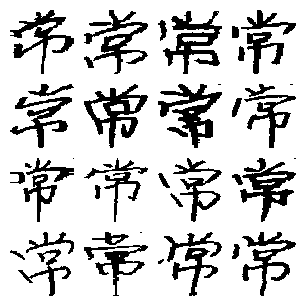 常常常常
常常常常
常常常常
常常常常